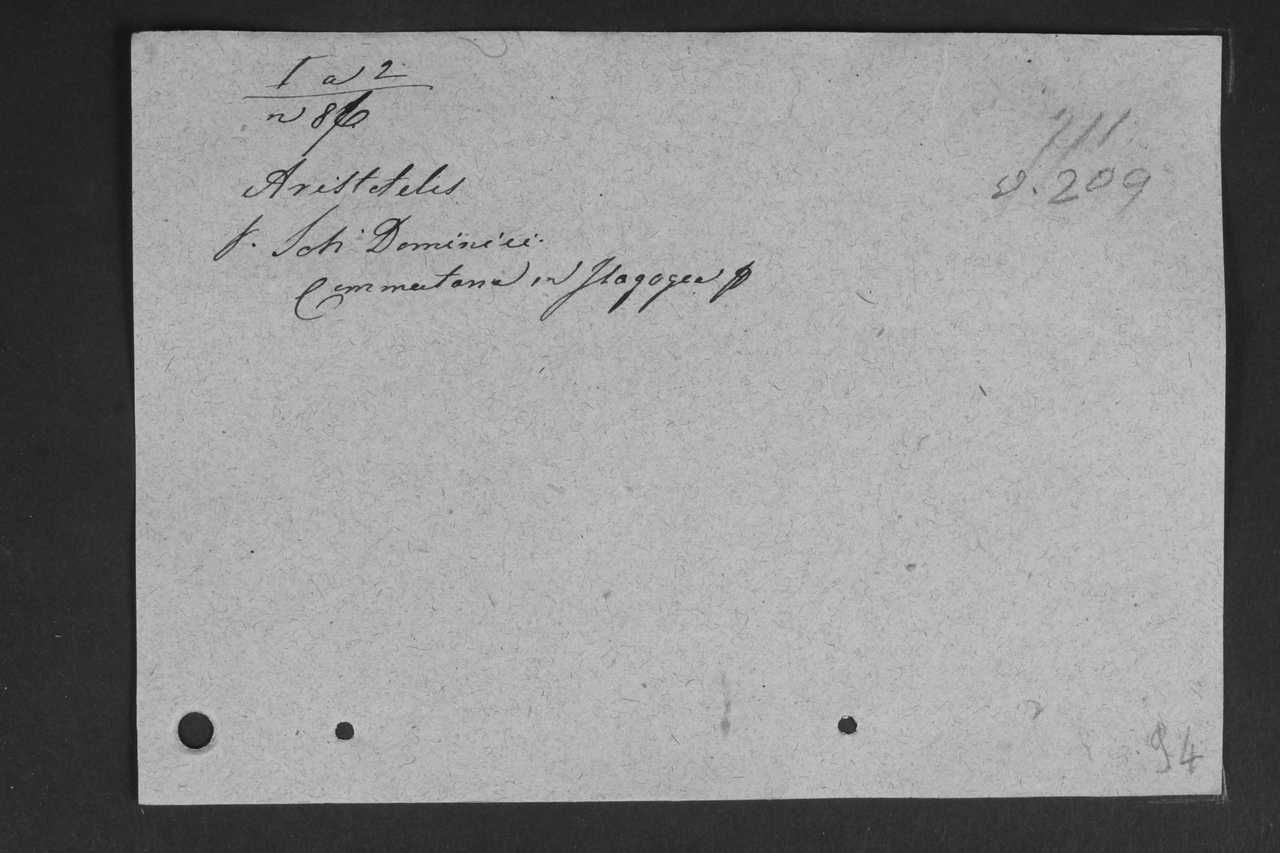 I a 2
n 86
711.
v. 209
Aristoteles
f. Soti Dominici.
Commentaria in Isagogea
94